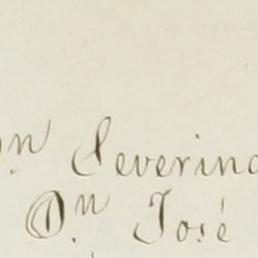 Dn. Severino
Dn. José